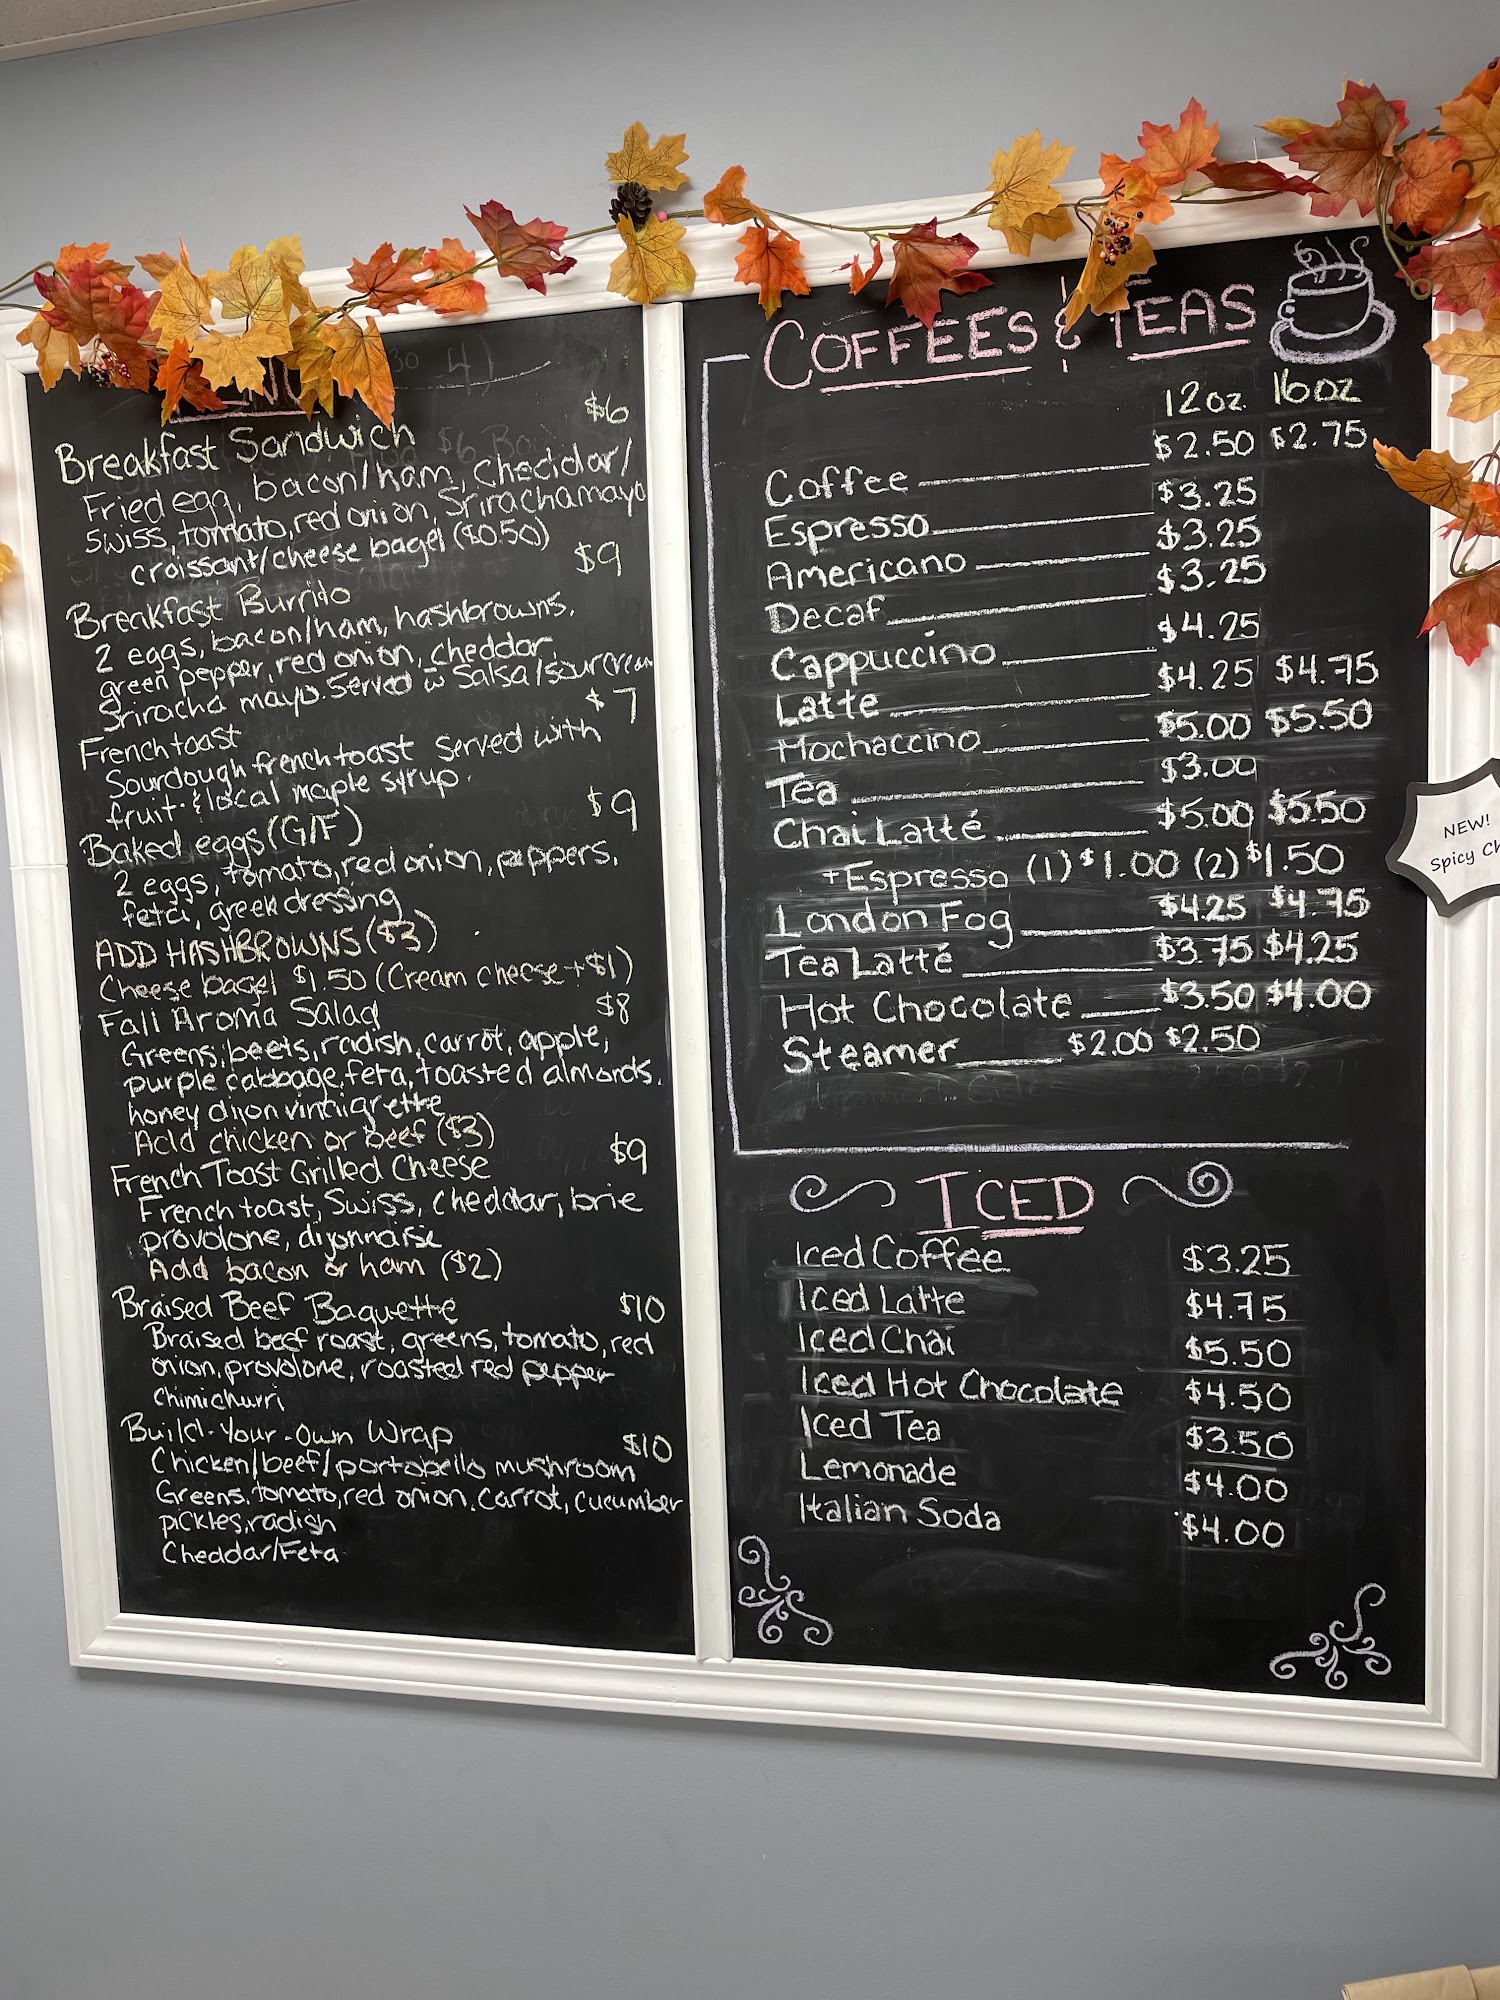 Breakfast Sandwich $6
Fried egg, bacon/ham, cheddar/
swiss, tomato, red onion, Sriracha mayo
croissant/cheese bagel ($0.50)
Breakfast Burrito $9
2 eggs, bacon/ham, hashbrowns,
green pepper, red onion, cheddar,
Sriracha mayo. Served w Salsa/sour cream
French toast $7
Sourdough french toast served with
fruit & local maple syrup.
Baked eggs (G/F) $9
2 eggs, tomato, red onion, peppers,
feta, greek dressing
ADD HASHBROWNS ($3)
Cheese bagel $1.50 (Cream cheese + $1)
Fall Aroma Salad $8
Greens, beets, radish, carrot, apple,
purple cabbage, feta, toasted almonds,
honey dijon viniigrette
Add chicken or beef ($3)
French Toast Grilled Cheese $9
French toast, Swiss, cheddar, brie
provolone, dijonnaise
Add bacon or ham ($2)
Braised Beef Baguette $10
Braised beef roast, greens, tomato, red
onion, provolone, roasted red pepper
chimichurri
Build-Your-Own Wrap $10
Chicken/beef/portobello mushroom
Greens, tomato, red onion, carrot, cucumber
pickles, radish
Cheddar/Feta
COFFEES & TEAS
12oz. 16oz
Coffee $2.50 $2.75
Espresso $3.25
Americano $3.25
Decaf $3.25
Cappuccino $4.25
Latte $4.25 $4.75
Mochaccino $5.00 $5.50
Tea $3.00
Chai Latté $5.00 $5.50
+Espresso (1) $1.00 (2) $1.50
London Fog $4.25 $4.75
Tea Latté $3.75 $4.25
Hot Chocolate $3.50 $4.00
Steamer $2.00 $2.50
ICED
Iced Coffee $3.25
Iced Latte $4.75
Iced Chai $5.50
Iced Hot Chocolate $4.50
Iced Tea $3.50
Lemonade $4.00
Italian Soda $4.00
NEW!
Spicy Ch